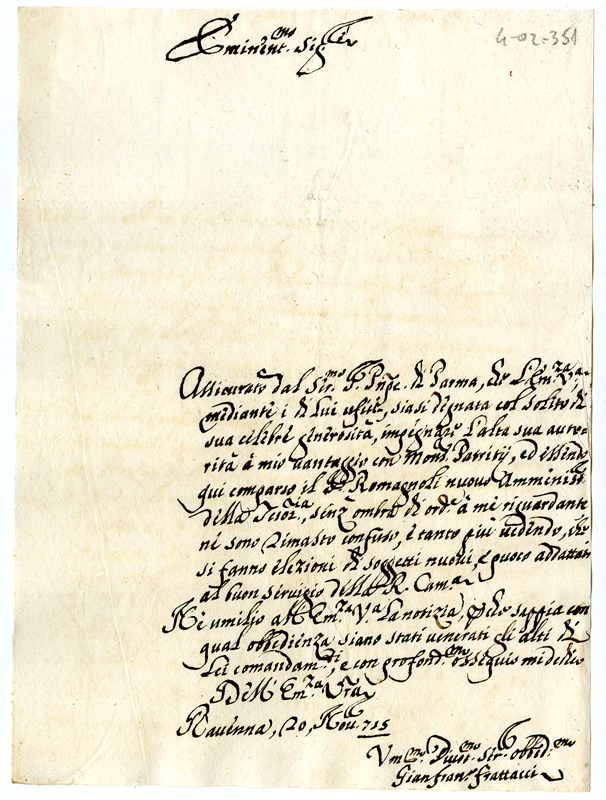 Eminent.mo Sig.re
4-02-351
Assicurato dal Ser.mo S. Pnpe. di Parma, che l'Em.za V.a
mediante i di lui ufitij, siasi degnata col solito di
sua celebre generosità, impegnare l'alta sua auto-
rità à mio vantaggio con Mons. Patritij, ed essendo
qui comparso il Romagnoli nuovo Amminist.
della Tesor.ia, senz'ombra di ord.e à me riguardante
ne sono rimasto confuso, e tanto più vedendo, che
si fanno elezioni di soggetti nuovi, e puoco addattati
al buon servigio della R. Cam.a
Ne umilio all'Em.za V.a la notizia, perche sappia con
qual obbedienza siano stati venerati gli alti di
Lei comandam.ti, e con profond.mo ossequio mi dedico
Dell'Em.za Vra
Ravenna, 20, Nov. 715
Vm.mo Div.mo Ser. obblig.mo
Gianfran.o Frattacci